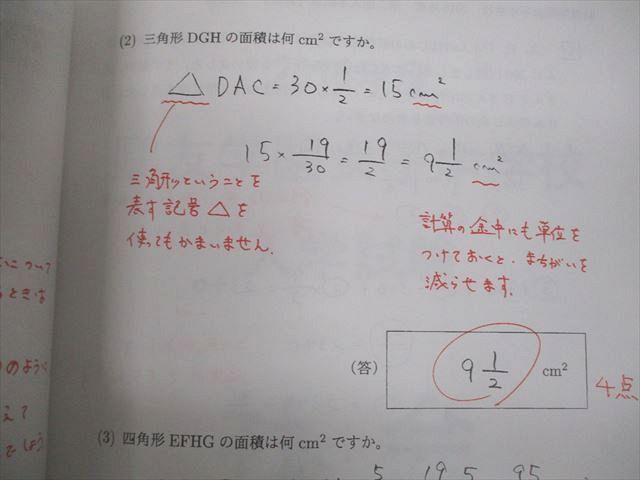 (2) 三角形 DGH の面積は何 cm² ですか。
△ DAC = 30 × 1/2 = 15 cm²
15 × 19/30 = 19/2 = 9 1/2 cm²
三角形ということを
表す記号 △ を
使ってもかまいません。
計算の途中にも単位を
つけておくと、まちがいを
減らせます。
(答) 9 1/2 cm²
4点
(3) 四角形 EFHG の面積は何 cm² ですか。
5 19 5 95
について
ときは
のように
えて
でしょう